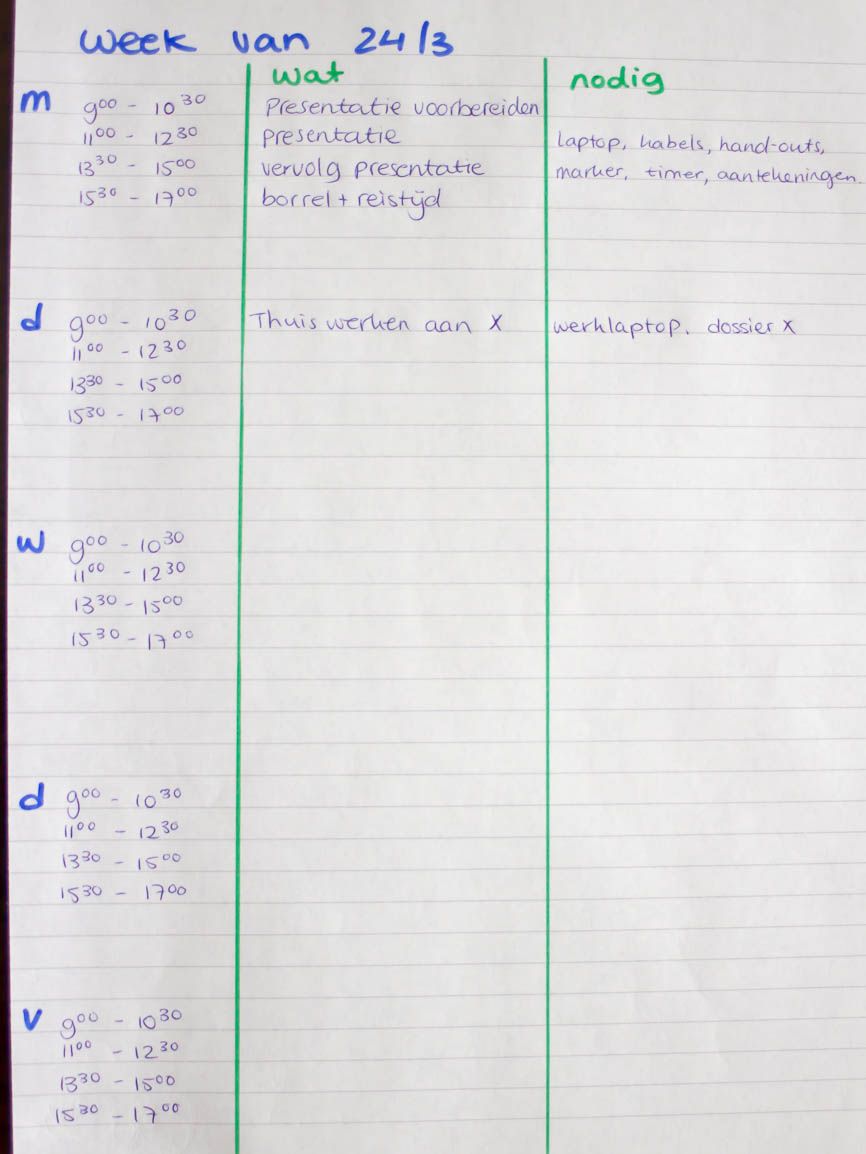 week van 24/3
wat nodig
m 9⁰⁰ - 10³⁰ Presentatie voorbereiden
11⁰⁰ - 12³⁰ presentatie laptop, kabels, hand-outs,
13³⁰ - 15⁰⁰ vervolg presentatie marker, timer, aantekeningen.
15³⁰ - 17⁰⁰ borrel + reistijd
d 9⁰⁰ - 10³⁰ Thuis werken aan X werklaptop. dossier X
11⁰⁰ - 12³⁰
13³⁰ - 15⁰⁰
15³⁰ - 17⁰⁰
w 9⁰⁰ - 10³⁰
11⁰⁰ - 12³⁰
13³⁰ - 15⁰⁰
15³⁰ - 17⁰⁰
d 9⁰⁰ - 10³⁰
11⁰⁰ - 12³⁰
13³⁰ - 15⁰⁰
15³⁰ - 17⁰⁰
v 9⁰⁰ - 10³⁰
11⁰⁰ - 12³⁰
13³⁰ - 15⁰⁰
15³⁰ - 17⁰⁰